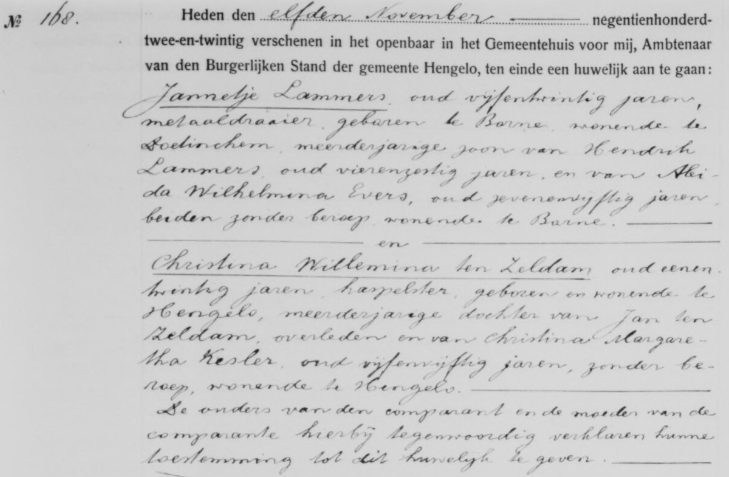 № 168. Heden den elfden November negentienhonderd-
twee-en-twintig verschenen in het openbaar in het Gemeentehuis voor mij, Ambtenaar
van den Burgerlijken Stand der gemeente Hengelo, ten einde een huwelijk aan te gaan:
Jannetje Lammers, oud vijfentwintig jaren,
metaaldraaier, geboren te Borne, wonende te
Doetinchem, meerderjarige zoon van Hendrik
Lammers, oud vierenzestig jaren, en van Alei-
da Wilhelmina Evers, oud zevenenvijftig jaren,
beiden zonder beroep, wonende te Borne.
en
Christina Willemina ten Zeldam, oud eenen-
twintig jaren, haspelster, geboren en wonende te
Hengelo, meerderjarige dochter van Jan ten
Zeldam, overleden en van Christina Margare-
tha Kesler, oud vijfenvijftig jaren, zonder be-
roep, wonende te Hengelo.
De ouders van den comparant en de moeder van de
comparante hierbij tegenwoordig verklaren hunne
toestemming tot dit huwelijk te geven.